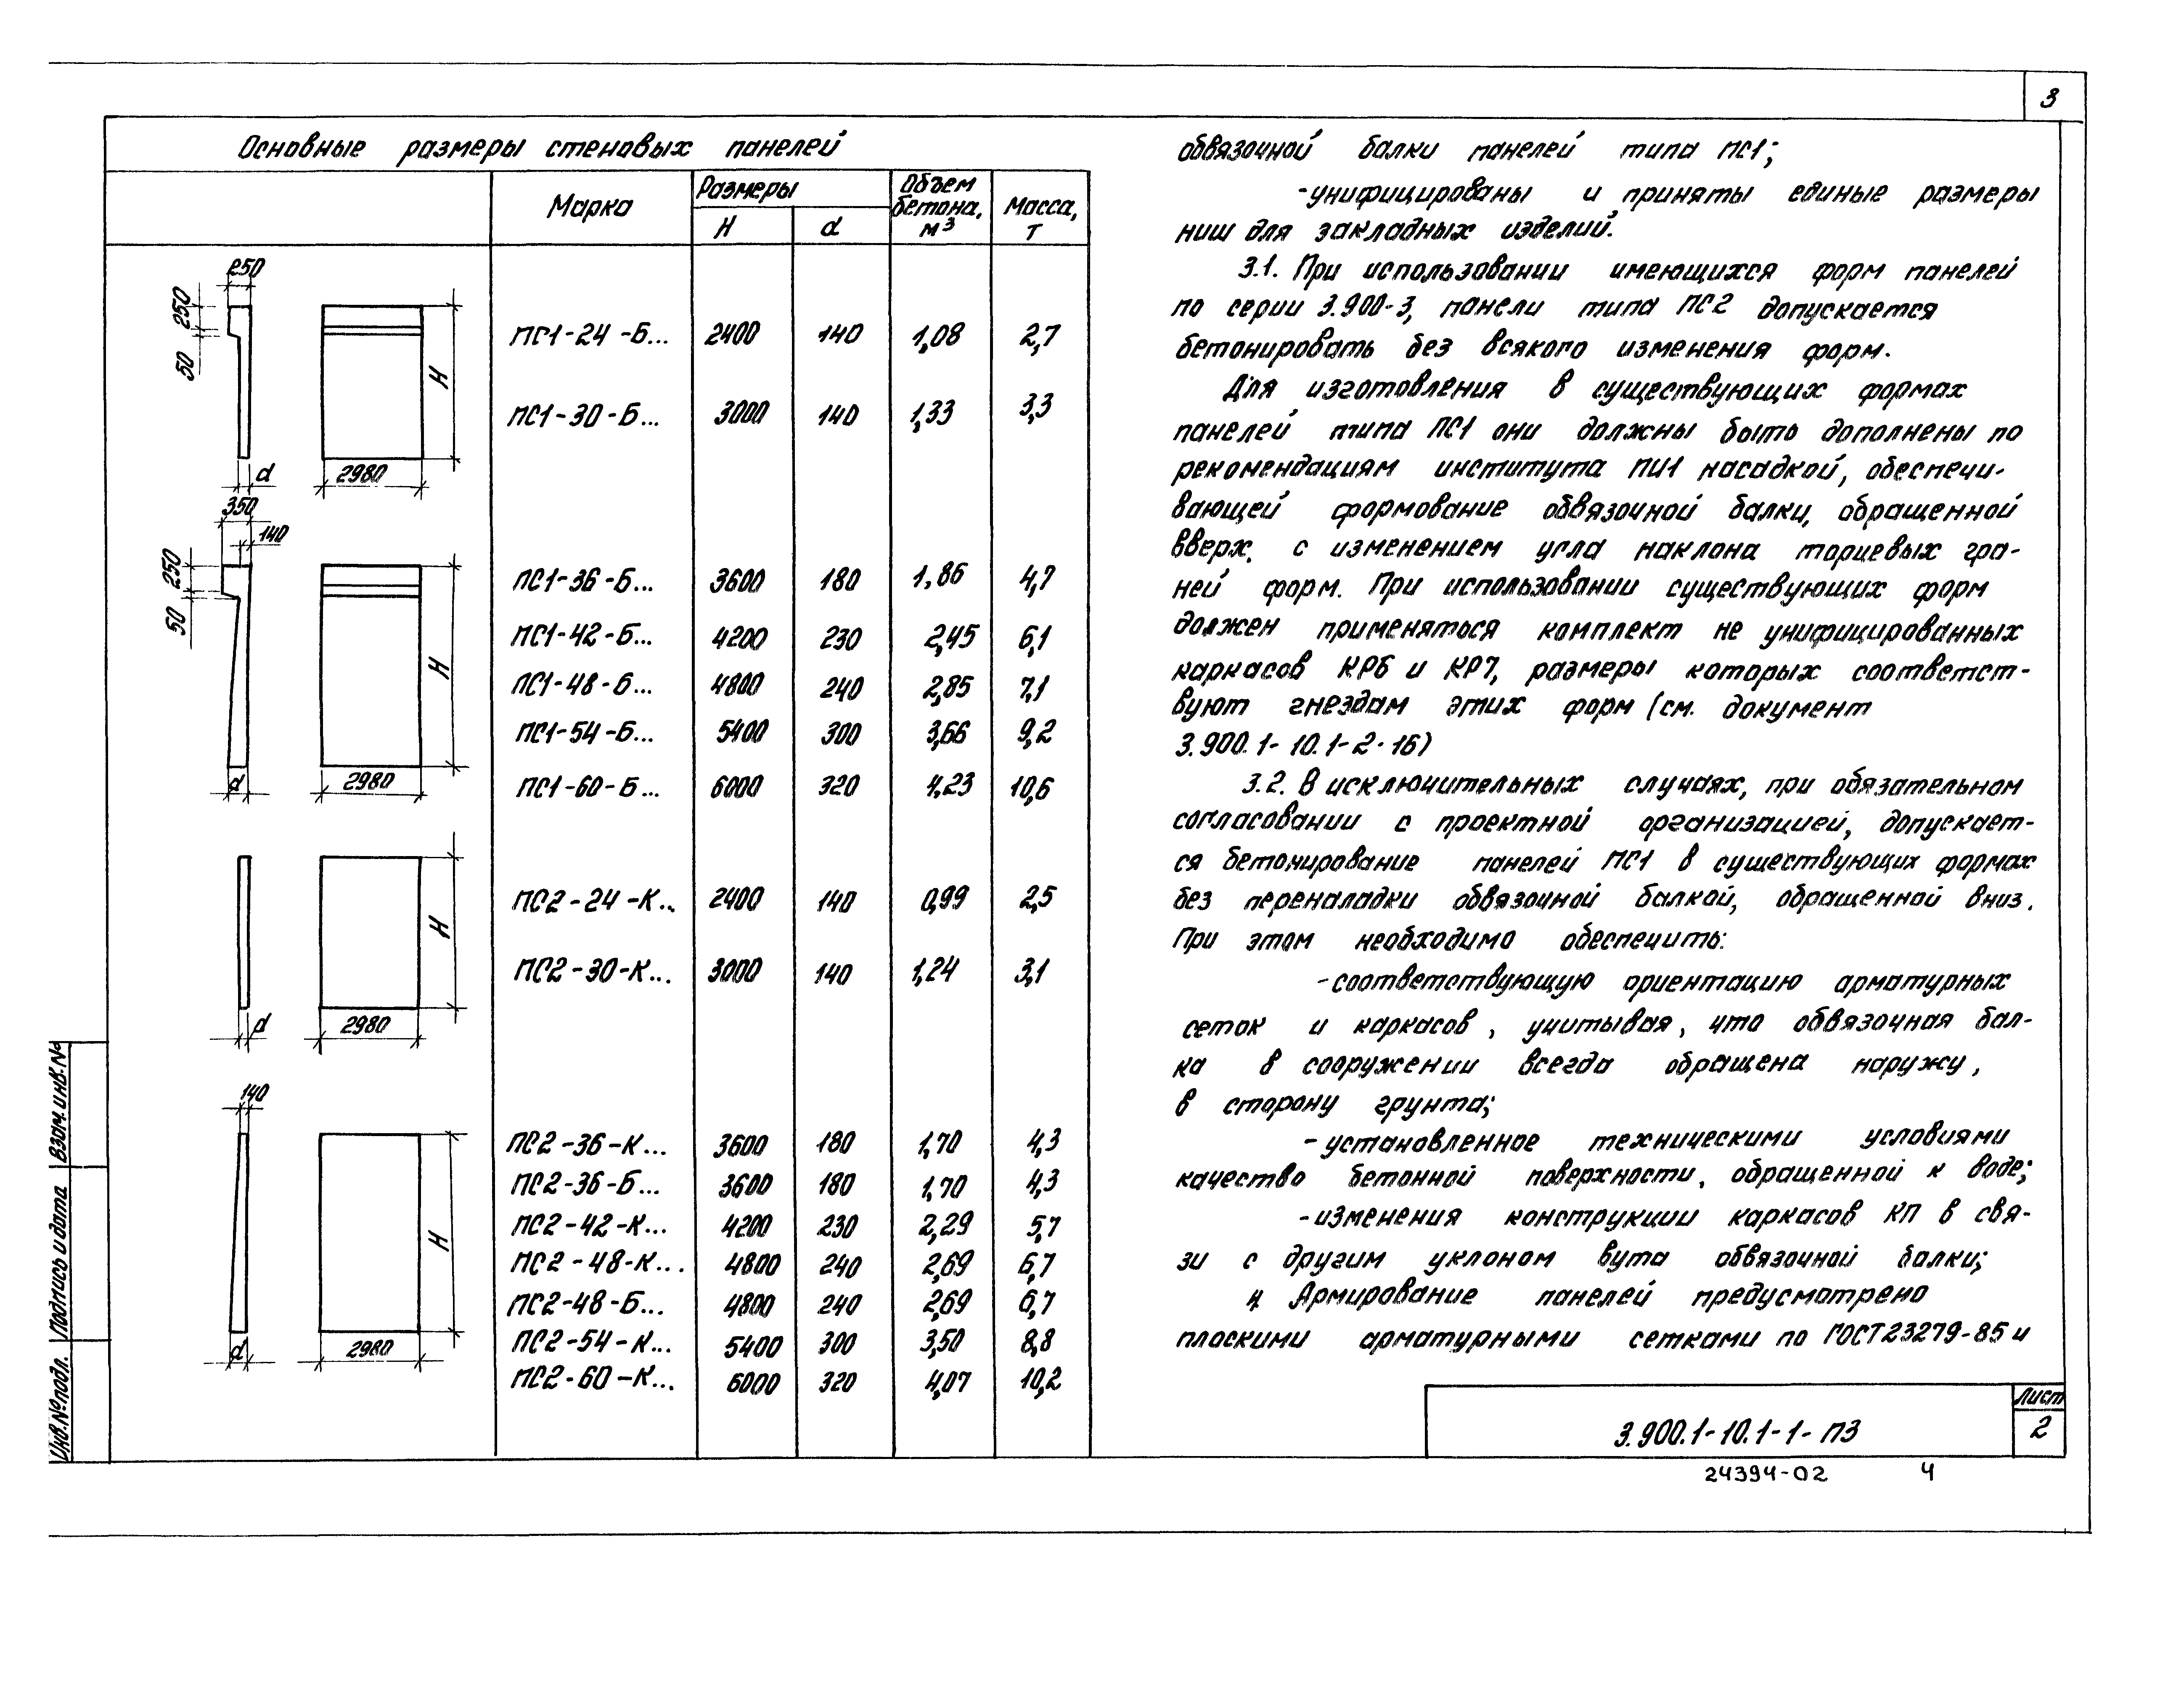 3
Основные размеры стеновых панелей
Марка
Размеры
H
d
Объем
бетона,
м³
Масса,
т
250
250
50
H
d
2980
ПС1-24-Б... 2400 140 1,08 2,7
ПС1-30-Б... 3000 140 1,33 3,3
350
140
250
50
H
d
2980
ПС1-36-Б... 3600 180 1,86 4,7
ПС1-42-Б... 4200 230 2,45 6,1
ПС1-48-Б... 4800 240 2,85 7,1
ПС1-54-Б... 5400 300 3,66 9,2
ПС1-60-Б... 6000 320 4,23 10,6
H
d
2980
ПС2-24-К... 2400 140 0,99 2,5
ПС2-30-К... 3000 140 1,24 3,1
140
H
d
2980
ПС2-36-К... 3600 180 1,70 4,3
ПС2-36-Б... 3600 180 1,70 4,3
ПС2-42-К... 4200 230 2,29 5,7
ПС2-48-К... 4800 240 2,69 6,7
ПС2-48-Б... 4800 240 2,69 6,7
ПС2-54-К... 5400 300 3,50 8,8
ПС2-60-К... 6000 320 4,07 10,2
обвязочной балки панелей типа ПС1;
-унифицированы и приняты единые размеры
ниш для закладных изделий.
3.1. При использовании имеющихся форм панелей
по серии 3.900-3, панели типа ПС2 допускается
бетонировать без всякого изменения форм.
Для изготовления в существующих формах
панелей типа ПС1 они должны быть дополнены по
рекомендациям института ПИ1 насадкой, обеспечи-
вающей формование обвязочной балки, обращенной
вверх, с изменением угла наклона торцевых гра-
ней форм. При использовании существующих форм
должен применяться комплект не унифицированных
каркасов КР6 и КР7, размеры которых соответст-
вуют гнездам этих форм (см. документ
3.900.1-10.1-2.16)
3.2. В исключительных случаях, при обязательном
согласовании с проектной организацией, допускает-
ся бетонирование панелей ПС1 в существующих формах
без переналадки обвязочной балкой, обращенной вниз.
При этом необходимо обеспечить:
-соответствующую ориентацию арматурных
сеток и каркасов, учитывая, что обвязочная бал-
ка в сооружении всегда обращена наружу,
в сторону грунта;
-установленное техническими условиями
качество бетонной поверхности, обращенной к воде;
-изменения конструкции каркасов КП в свя-
зи с другим уклоном вута обвязочной балки;
4 Армирование панелей предусмотрено
плоскими арматурными сетками по ГОСТ 23279-85 и
Взам. инв. №
Подпись и дата
Инв. № подл.
3.900.1-10.1-1-ПЗ
Лист
2
24394-02 4